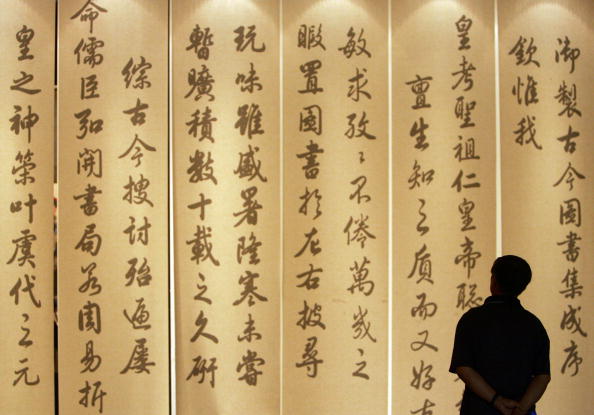 御製古今圖書集成序
欽惟我
皇考聖祖仁皇帝聰
亶生知之質而又好古
敏求孜〻不倦萬幾之
暇置圖書於左右披尋
玩味雖盛暑隆寒未嘗
暫曠積數十載之久研
綜古今搜討殆遍屢
命儒臣弘開書局若周易折
皇之神策叶虞代之元